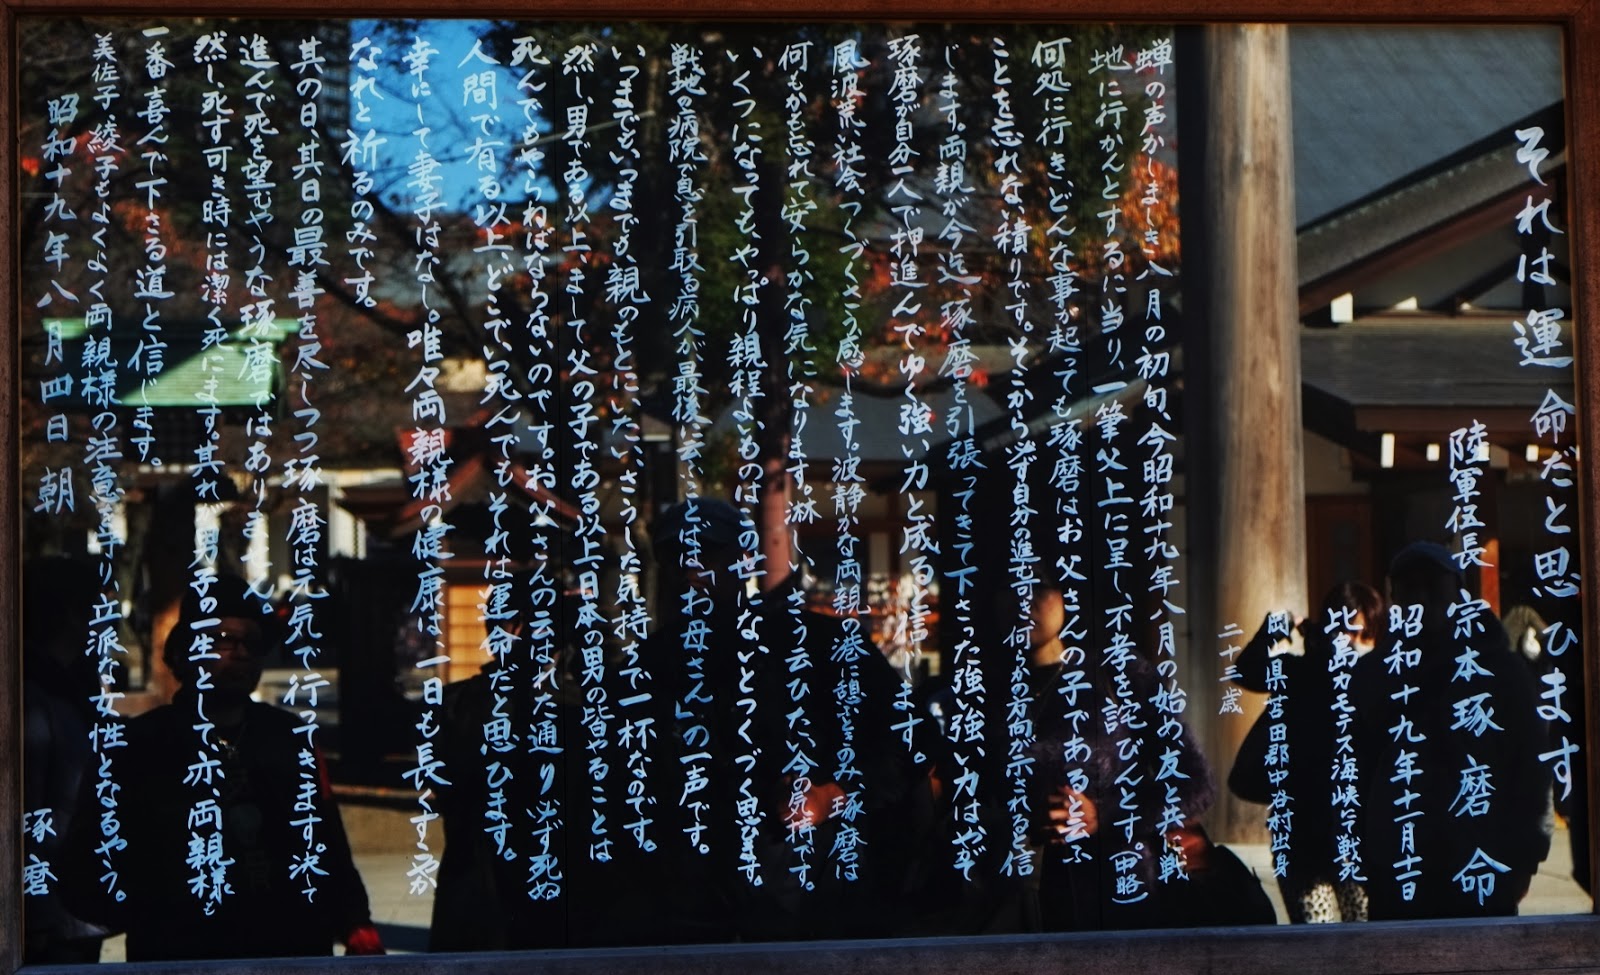 それは運命だと思ひます
陸軍伍長 宗本琢磨 命
昭和十九年十一月十一日
比島カモテス海峡にて戦死
岡山県苫田郡中谷村出身
二十三歳
蝉の声かしましき八月の初旬、今昭和十九年八月の始め、友と共に戦
地に行かんとするに当り、一筆父上に呈し、不孝を詫びんとす。(中略)
何処に行き、どんな事が起っても琢磨はお父さんの子であると云ふ
ことを忘れない積りです。そこから必ず自分の進む可き、何らかの方向が示されると信
じます。両親が今迄、琢磨を引張ってきて下さった強い強い力はやがて
琢磨が自分一人で押進んでゆく強い力と成ると信じます。
風波荒い社会、つくづくさう感じます。波静かな両親の港に憩ふときのみ、琢磨は
何もかも忘れて安らかな気になります。淋しい、さう云ひたい今の気持です。
いくつになっても、やっぱり親程よいものはこの世にないとつくづく思ひます。
戦地の病院で息を引取る病人が最後に云ふことばは「お母さん」の一声です。
いつまでも、いつまでも、親のもとにいたい、さうした気持ちで一杯なのです。
然し、男である以上、まして父の子である以上、日本の男の皆やることは
死んでもやらねばならないのです。お父さんの云はれた通り必ず死ぬ
人間で有る以上、どこでいつ死んでもそれは運命だと思ひます。
幸にして妻子はなし。唯々両親様の健康は、一日も長くすこやか
なれと祈るのみです。
其の日、其日の最善を尽しつつ琢磨は元気で行ってきます。決して
進んで死を望むやうな琢磨ではありません。
然し死す可き時には潔く死にます。其れが男子の一生として、亦、両親様も
一番喜んで下さる道と信じます。
美佐子、綾子もよくよく両親様の注意を守り、立派な女性となるやう。
昭和十九年八月四日朝
琢磨